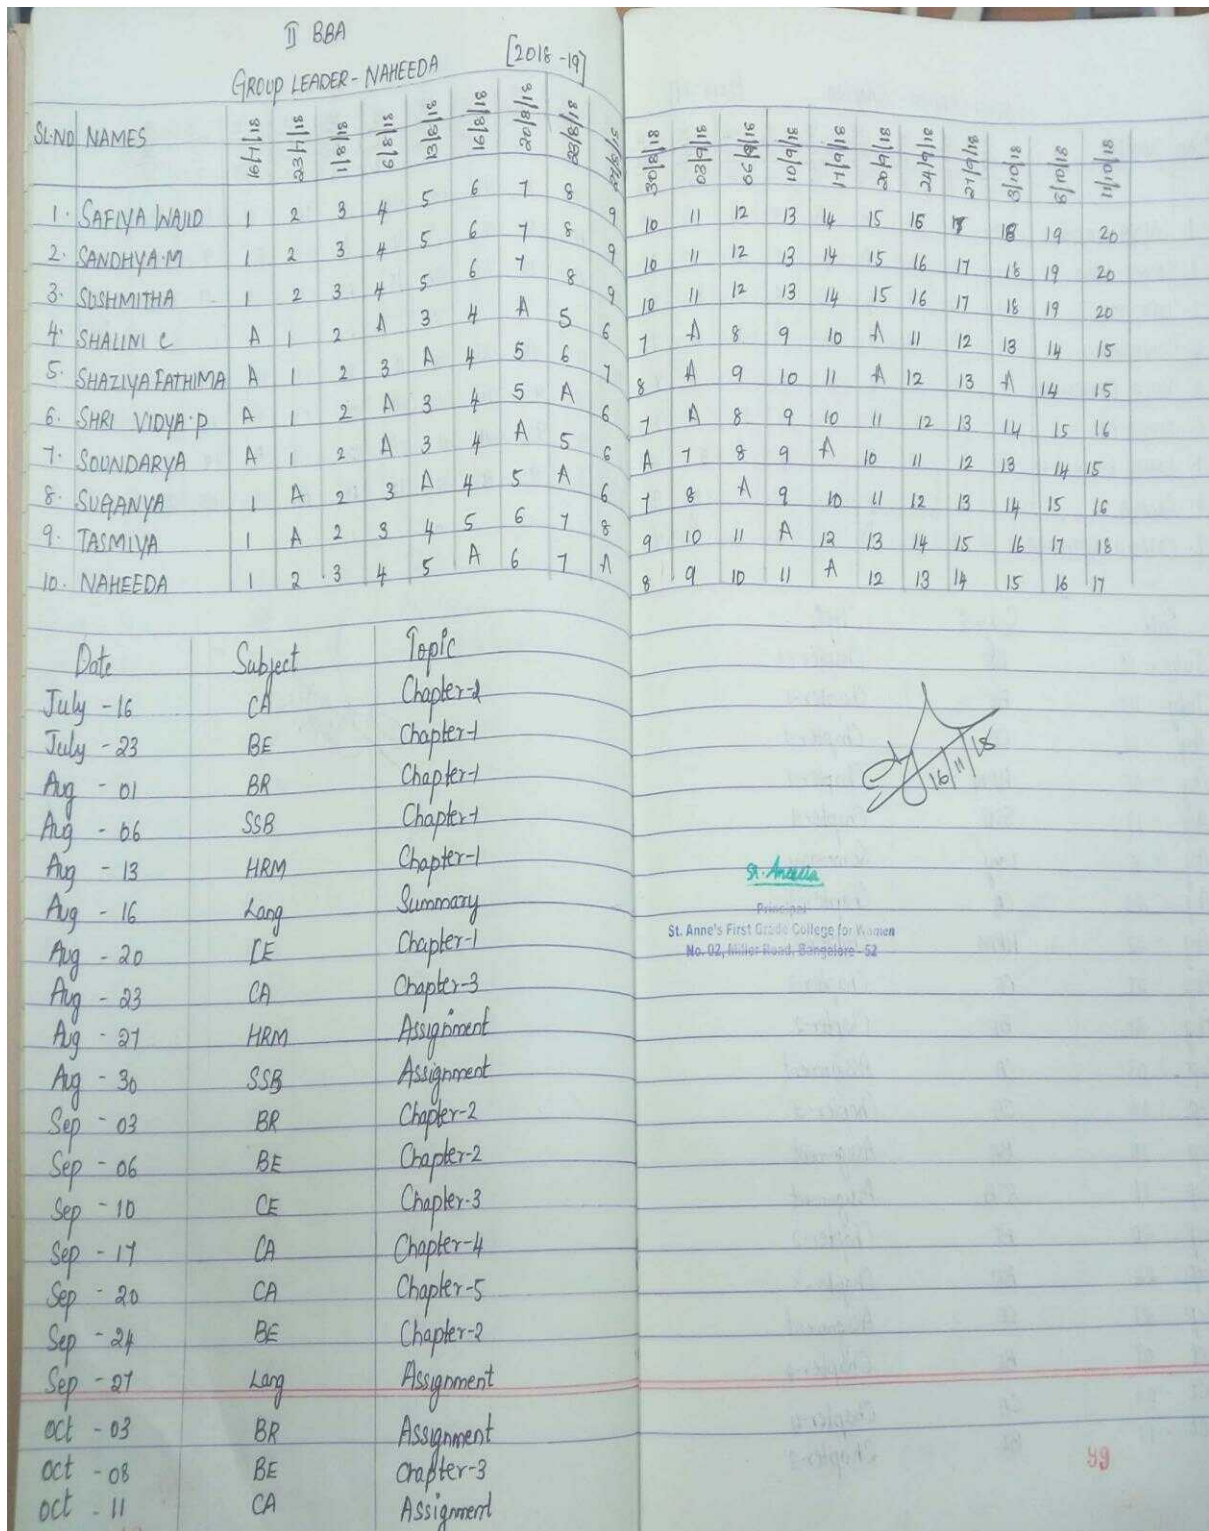 II BBA
GROUP LEADER - NAHEEDA [2018-19]
SL.NO NAMES 16/7/18 23/7/18 1/8/18 6/8/18 13/8/18 16/8/18 20/8/18 23/8/18 30/8/18 03/9/18 06/9/18 10/9/18 17/9/18 20/9/18 24/9/18 27/9/18 3/10/18 8/10/18 11/10/18
1. SAFIYA WAJID 1 2 3 4 5 6 7 8 9 10 11 12 13 14 15 16 17 18 19 20
2. SANDHYA.M 1 2 3 4 5 6 7 8 9 10 11 12 13 14 15 16 17 18 19 20
3. SUSHMITHA 1 2 3 4 5 6 7 8 9 10 11 12 13 14 15 16 17 18 19 20
4. SHALINI C A 1 2 A 3 4 A 5 6 7 A 8 9 10 A 11 12 13 14 15
5. SHAZIYA FATHIMA A 1 2 3 A 4 5 6 7 8 A 9 10 11 A 12 13 A 14 15
6. SHRI VIDYA.P A 1 2 A 3 4 5 A 6 7 A 8 9 10 11 12 13 14 15 16
7. SOUNDARYA A 1 2 A 3 4 A 5 6 A 7 8 9 A 10 11 12 13 14 15
8. SUGANYA 1 A 2 3 A 4 5 A 6 7 8 A 9 10 11 12 13 14 15 16
9. TASMIYA 1 A 2 3 4 5 6 7 8 9 10 11 A 12 13 14 15 16 17 18
10. NAHEEDA 1 2 3 4 5 A 6 7 A 8 9 10 11 A 12 13 14 15 16 17
Date Subject Topic
July - 16 CA Chapter-2
July - 23 BE Chapter-1
Aug - 01 BR Chapter-1
Aug - 06 SSB Chapter-1
Aug - 13 HRM Chapter-1
Aug - 16 Lang Summary
Aug - 20 CE Chapter-1
Aug - 23 CA Chapter-3
Aug - 27 HRM Assignment
Aug - 30 SSB Assignment
Sep - 03 BR Chapter-2
Sep - 06 BE Chapter-2
Sep - 10 CE Chapter-3
Sep - 17 CA Chapter-4
Sep - 20 CA Chapter-5
Sep - 24 BE Chapter-2
Sep - 27 Lang Assignment
Oct - 03 BR Assignment
Oct - 08 BE Chapter-3
Oct - 11 CA Assignment
16/11/18
Principal
St. Anne's First Grade College for Women
No. 02, Miller Road, Bangalore - 52
99